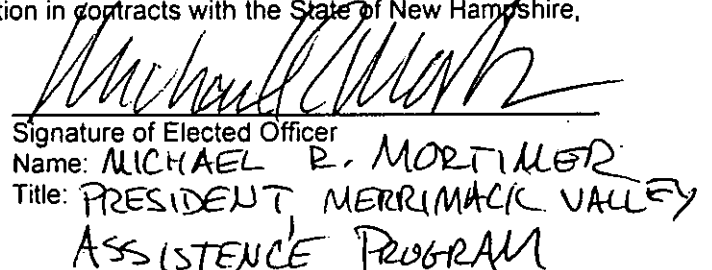 tion in contracts with the State of New Hampshire,
Signature of Elected Officer
Name: MICHAEL R. MORTIMER
Title: PRESIDENT, MERRIMACK VALLEY
ASSISTENCE PROGRAM